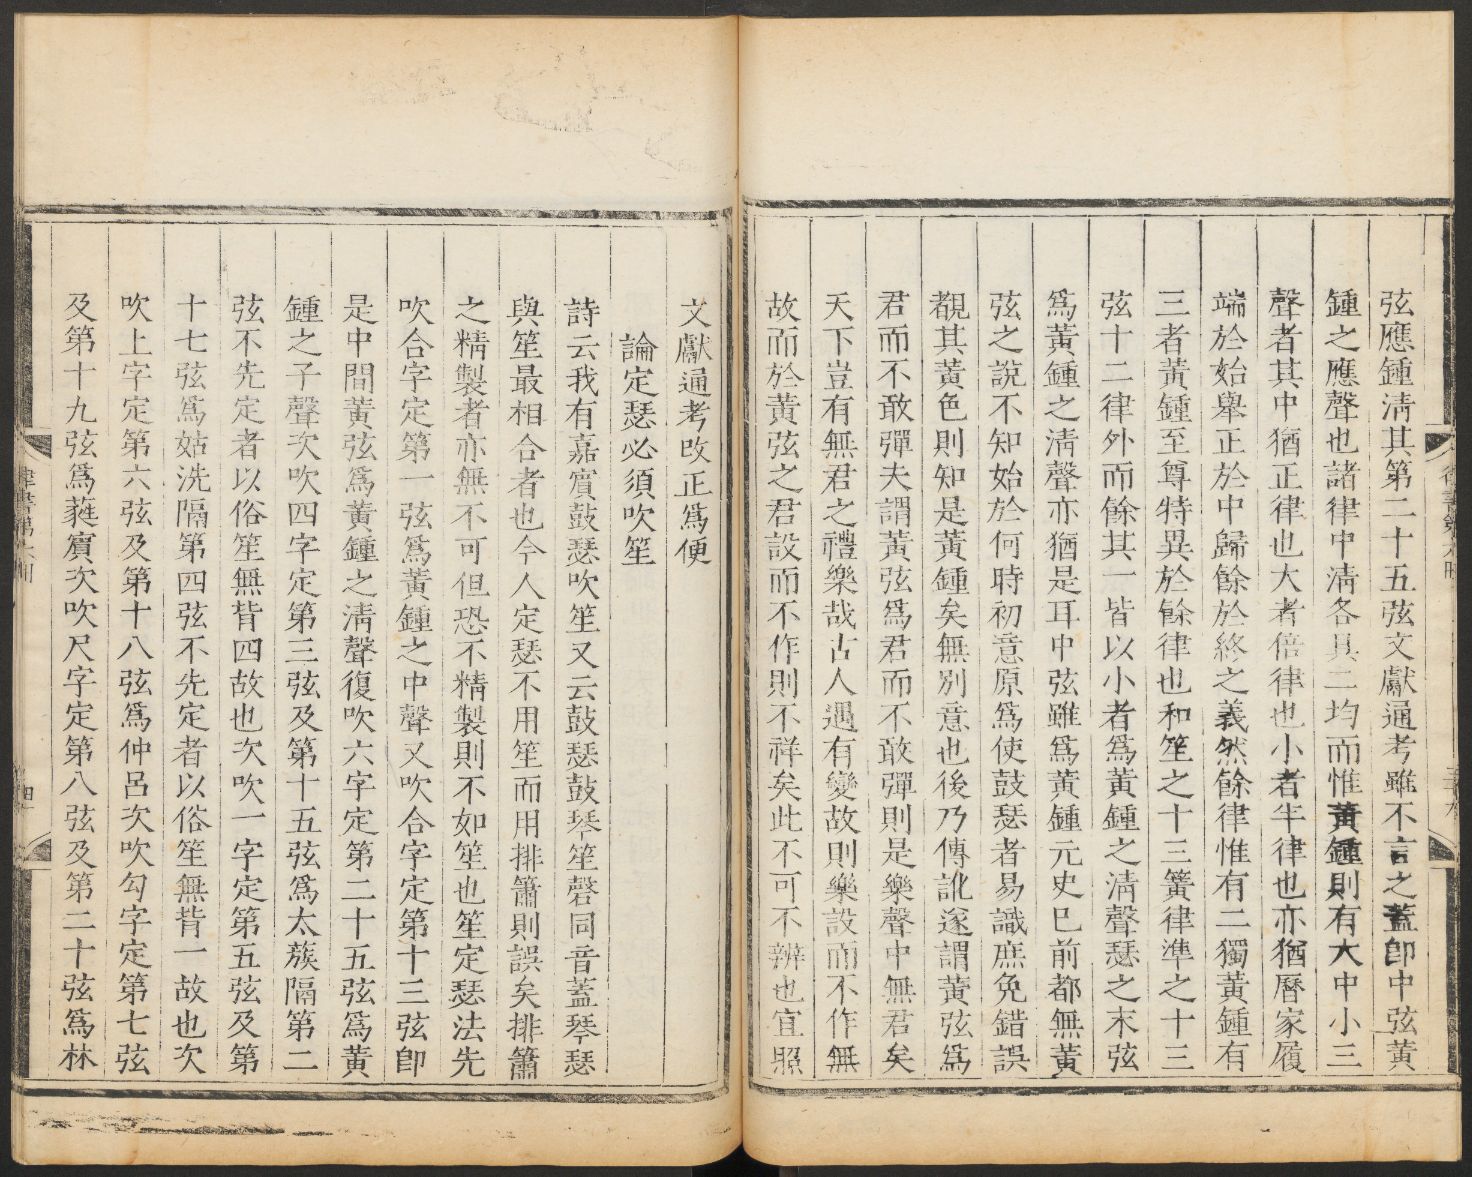 弦應鍾淸其第二十五弦文獻通考雖不言之蓋卽中弦黃
鍾之應聲也諸律中淸各具二均而惟黃鍾則有大中小三
聲者其中猶正律也大者倍律也小者半律也亦猶曆家履
端於始舉正於中歸餘於終之義然餘律惟有二獨黃鍾有
三者黃鍾至尊特異於餘律也和笙之十三簧律準之十三
弦十二律外而餘其一皆以小者爲黃鍾之淸聲瑟之末弦
爲黃鍾之淸聲亦猶是耳中弦雖爲黃鍾元史巳前都無黃
弦之說不知始於何時初意原爲使鼓瑟者易識庶免錯誤
覩其黃色則知是黃鍾矣無別意也後乃傳訛遂謂黃弦爲
君而不敢彈夫謂黃弦爲君而不敢彈則是樂聲中無君矣
天下豈有無君之禮樂哉古人遇有變故則樂設而不作無
故而於黃弦之君設而不作則不祥矣此不可不辨也宜照
文獻通考改正爲便
論定瑟必須吹笙
詩云我有嘉賓鼓瑟吹笙又云鼓瑟鼓琴笙磬同音蓋琴瑟
與笙最相合者也今人定瑟不用笙而用排簫則誤矣排簫
之精製者亦無不可但恐不精製則不如笙也笙定瑟法先
吹合字定第一弦爲黃鍾之中聲又吹合字定第十三弦卽
是中間黃弦爲黃鍾之淸聲復吹六字定第二十五弦爲黃
鍾之子聲次吹四字定第三弦及第十五弦爲太蔟隔第二
弦不先定者以俗笙無背四故也次吹一字定第五弦及第
十七弦爲姑洗隔第四弦不先定者以俗笙無背一故也次
吹上字定第六弦及第十八弦爲仲呂次吹勾字定第七弦
及第十九弦爲蕤賓次吹尺字定第八弦及第二十弦爲林